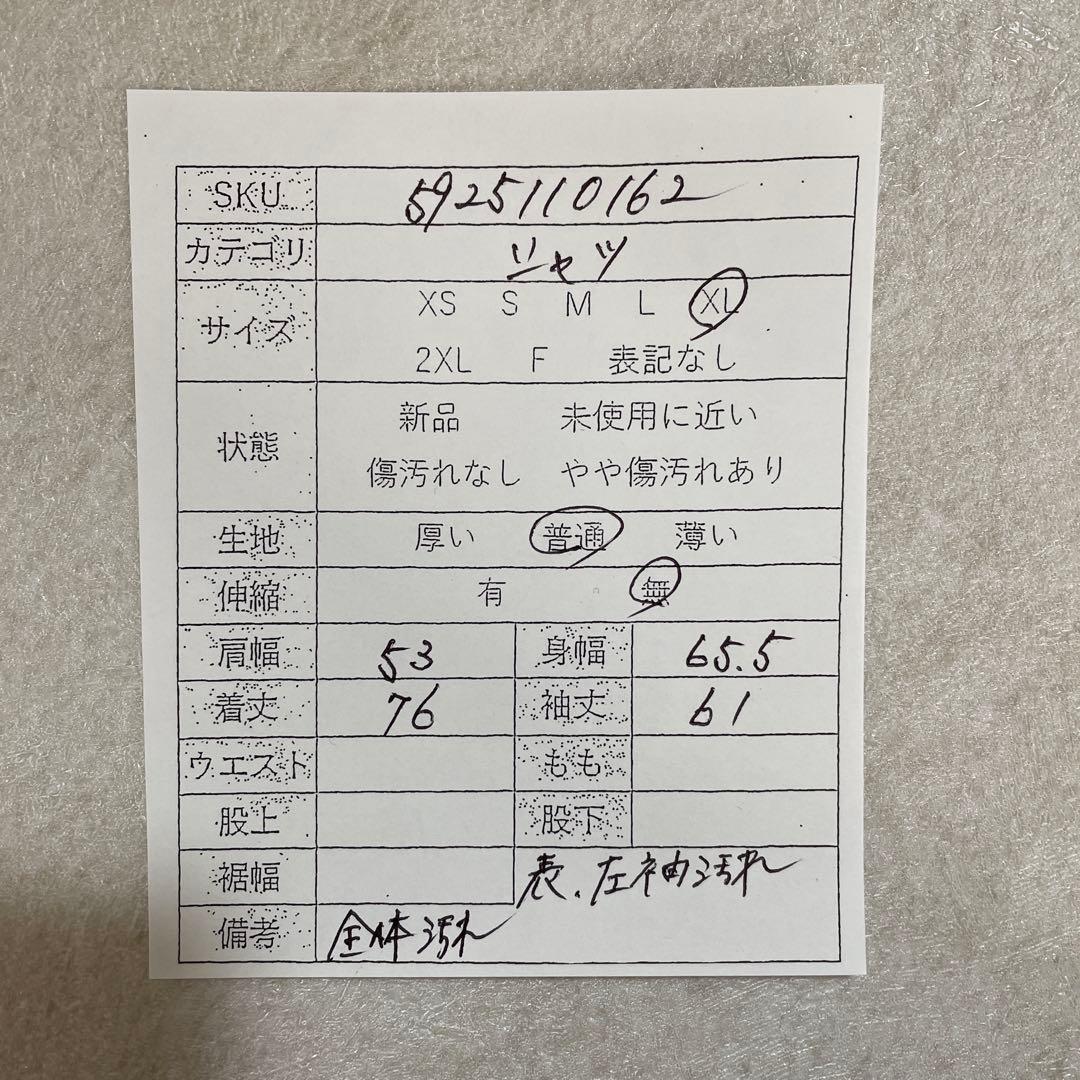 SKU 5925110162
カテゴリ シャツ
サイズ XS S M L XL
2XL F 表記なし
状態 新品 未使用に近い
傷汚れなし やや傷汚れあり
生地 厚い 普通 薄い
伸縮 有 無
肩幅 53 身幅 65.5
着丈 76 袖丈 61
ウエスト もも
股上 股下
裾幅 表、左袖汚れ
備考 全体汚れ